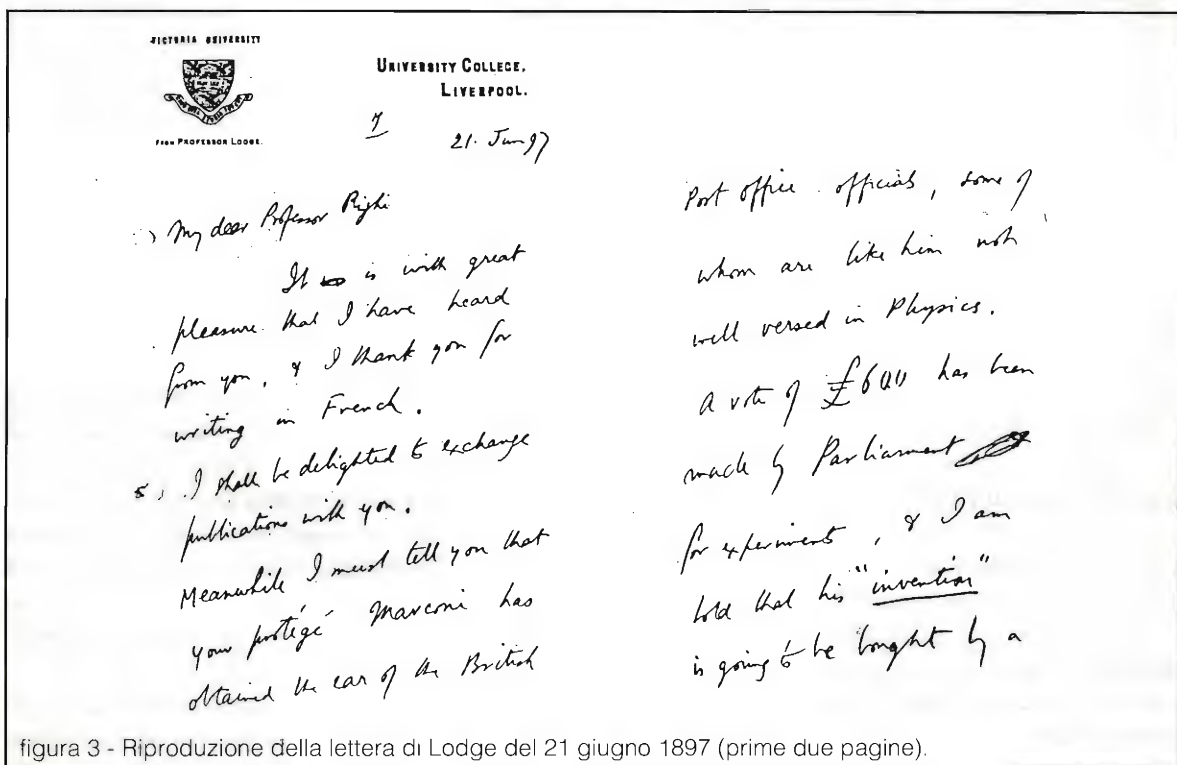 VICTORIA UNIVERSITY
FROM PROFESSOR LODGE.
UNIVERSITY COLLEGE,
LIVERPOOL.
7
21. Jun 97
My dear Professor Righi
It is with great
pleasure that I have heard
from you, & I thank you for
writing in French.
I shall be delighted to exchange
publications with you.
Meanwhile I must tell you that
your protégé Marconi has
obtained the ear of the British
Post office officials, some of
whom are like him not
well versed in Physics.
A vote of £600 has been
made by Parliament
for experiments, & I am
told that his "invention"
is going to be bought by a
figura 3 - Riproduzione della lettera di Lodge del 21 giugno 1897 (prime due pagine).